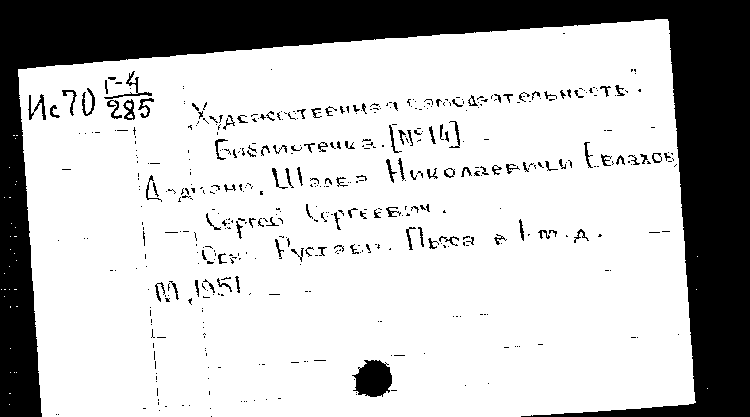 Ис70 Г-4/285
„Художественная самодеятельность".
Библиотечка. [№14]
Дадиани, Шалва Николаевич и Евлахов,
Сергей Сергеевич.
Рустави. Пьеса в 1 т.д.
М, 1951.